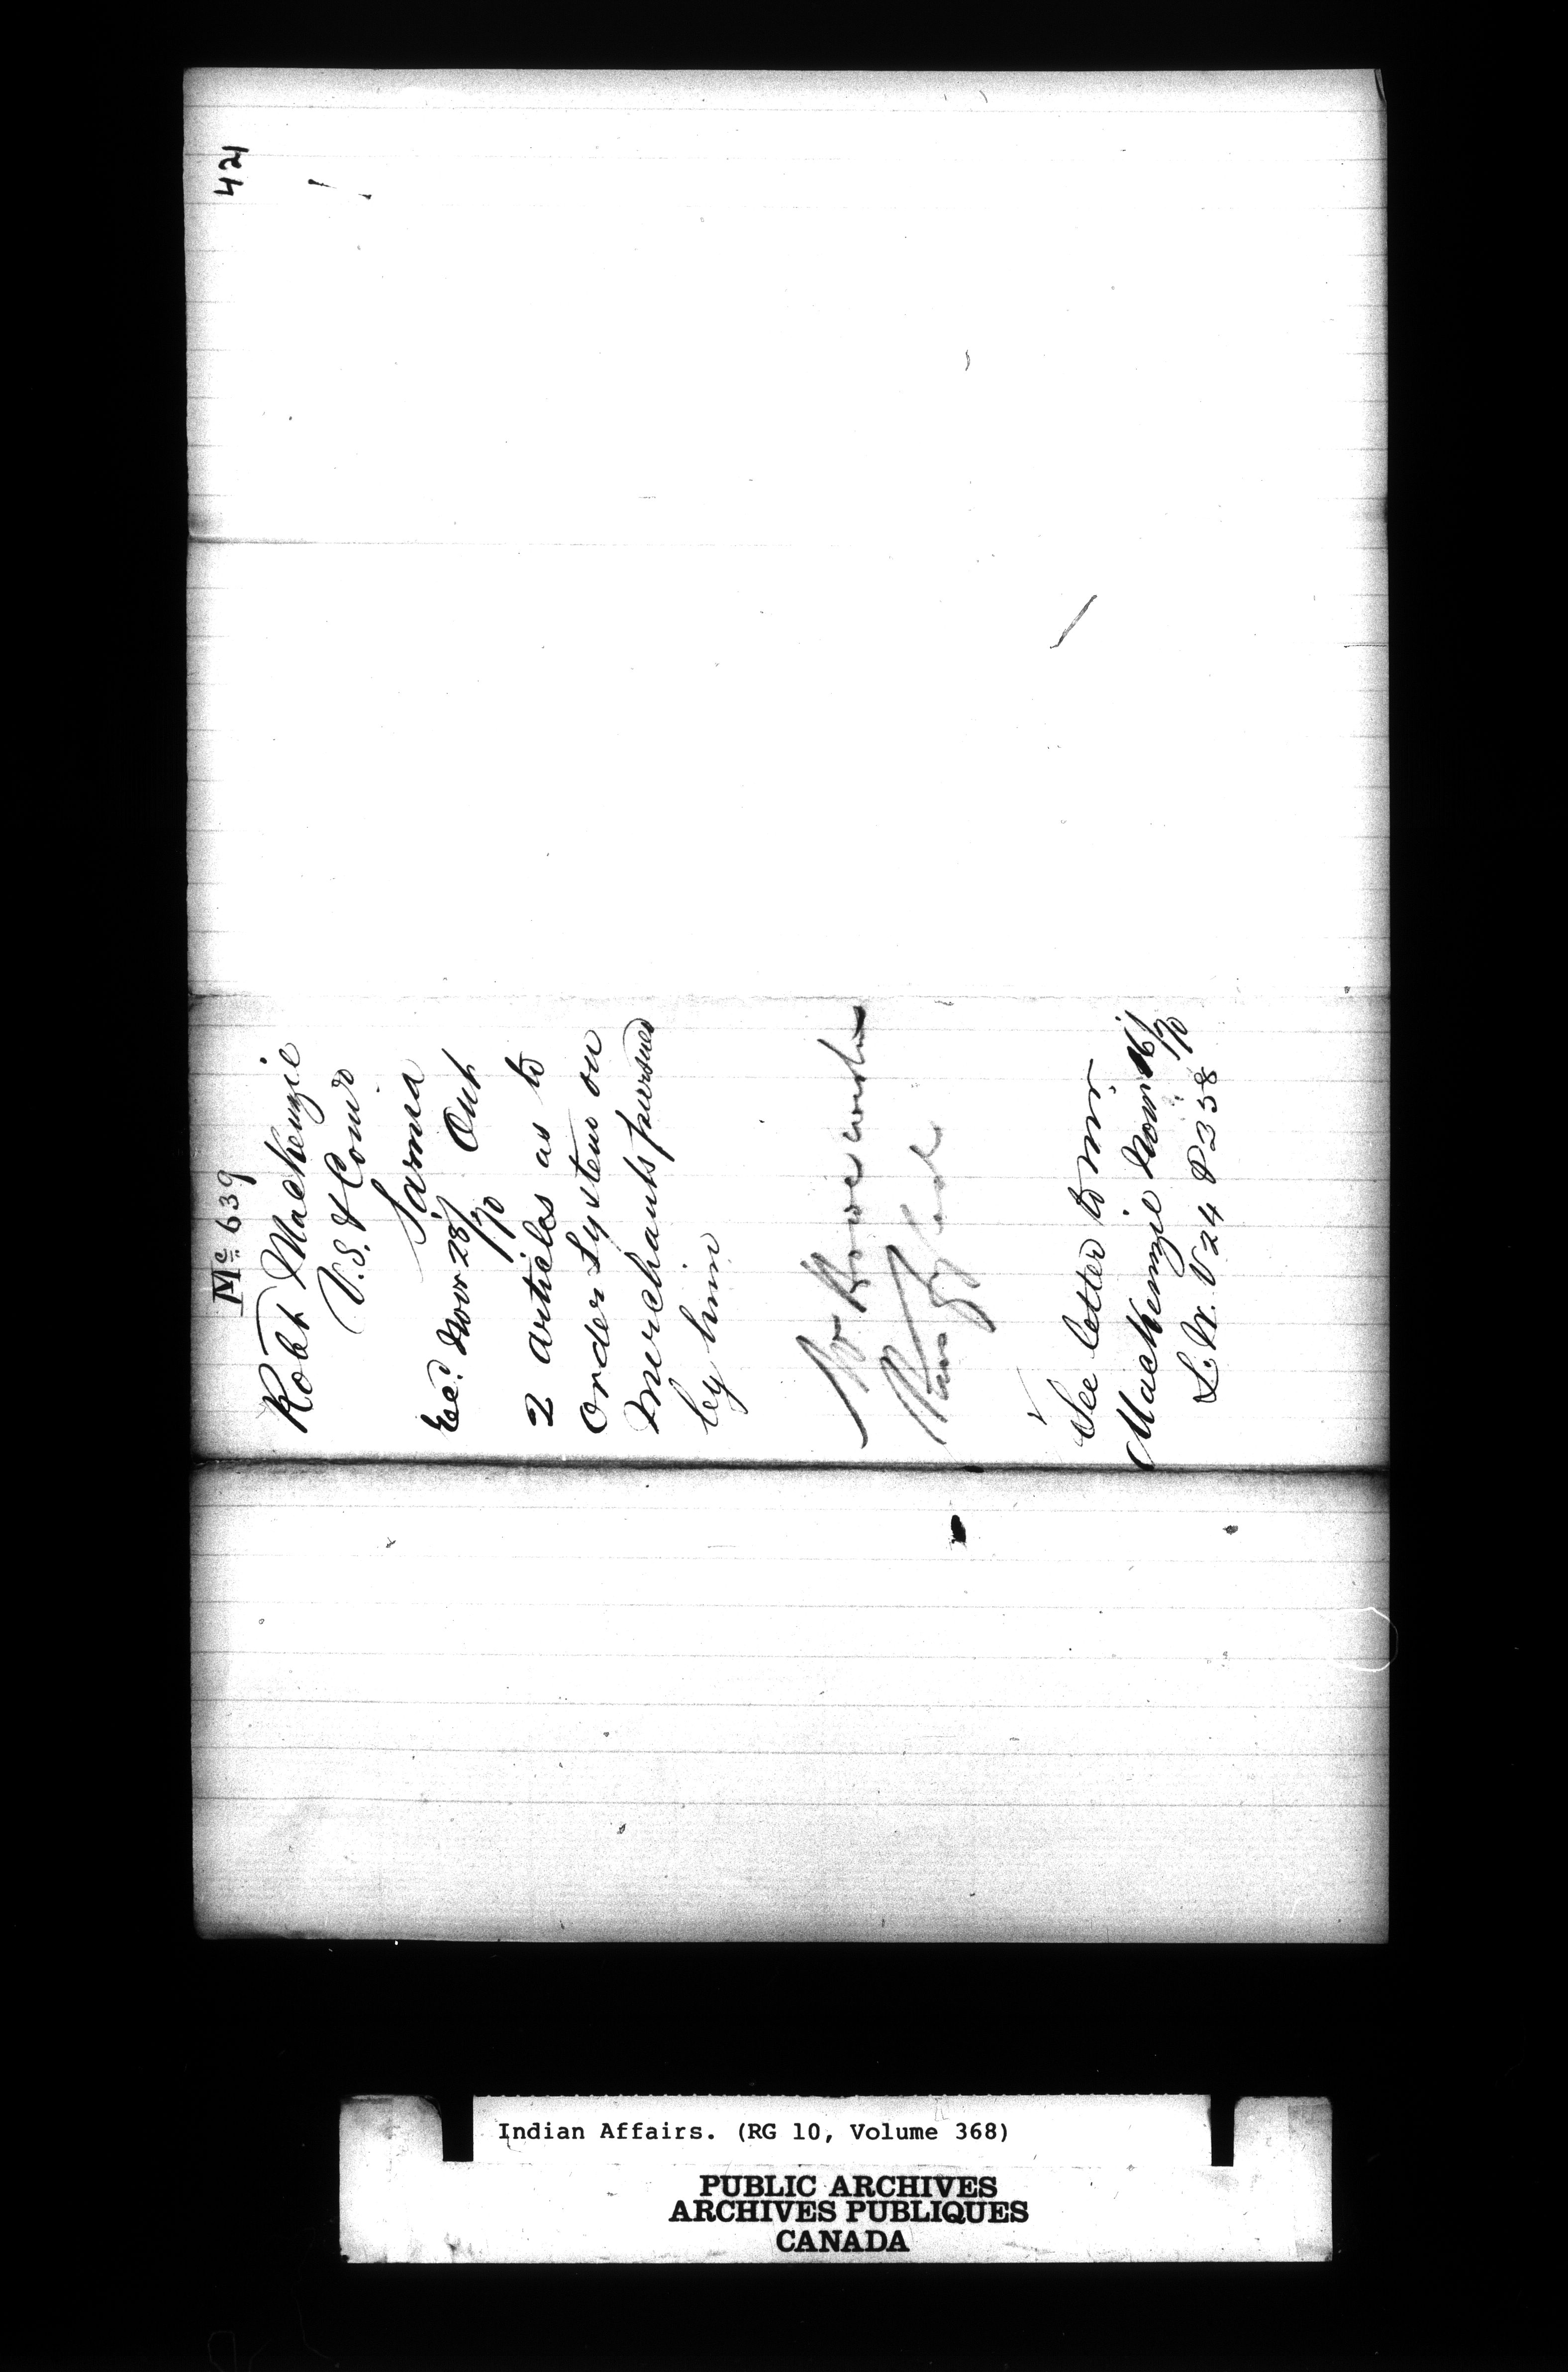 421
Mc 639
Robt Mackenzie
V.S. & Comr
Sarnia
Rec. Novr 28/70 Ont
2 articles as to
Order System on
Merchants pursued
by him
See letter to Mr.
Mackenzie Novr
L.W. V 24 P 338
Indian Affairs. (RG 10, Volume 368)
PUBLIC ARCHIVES
ARCHIVES PUBLIQUES
CANADA